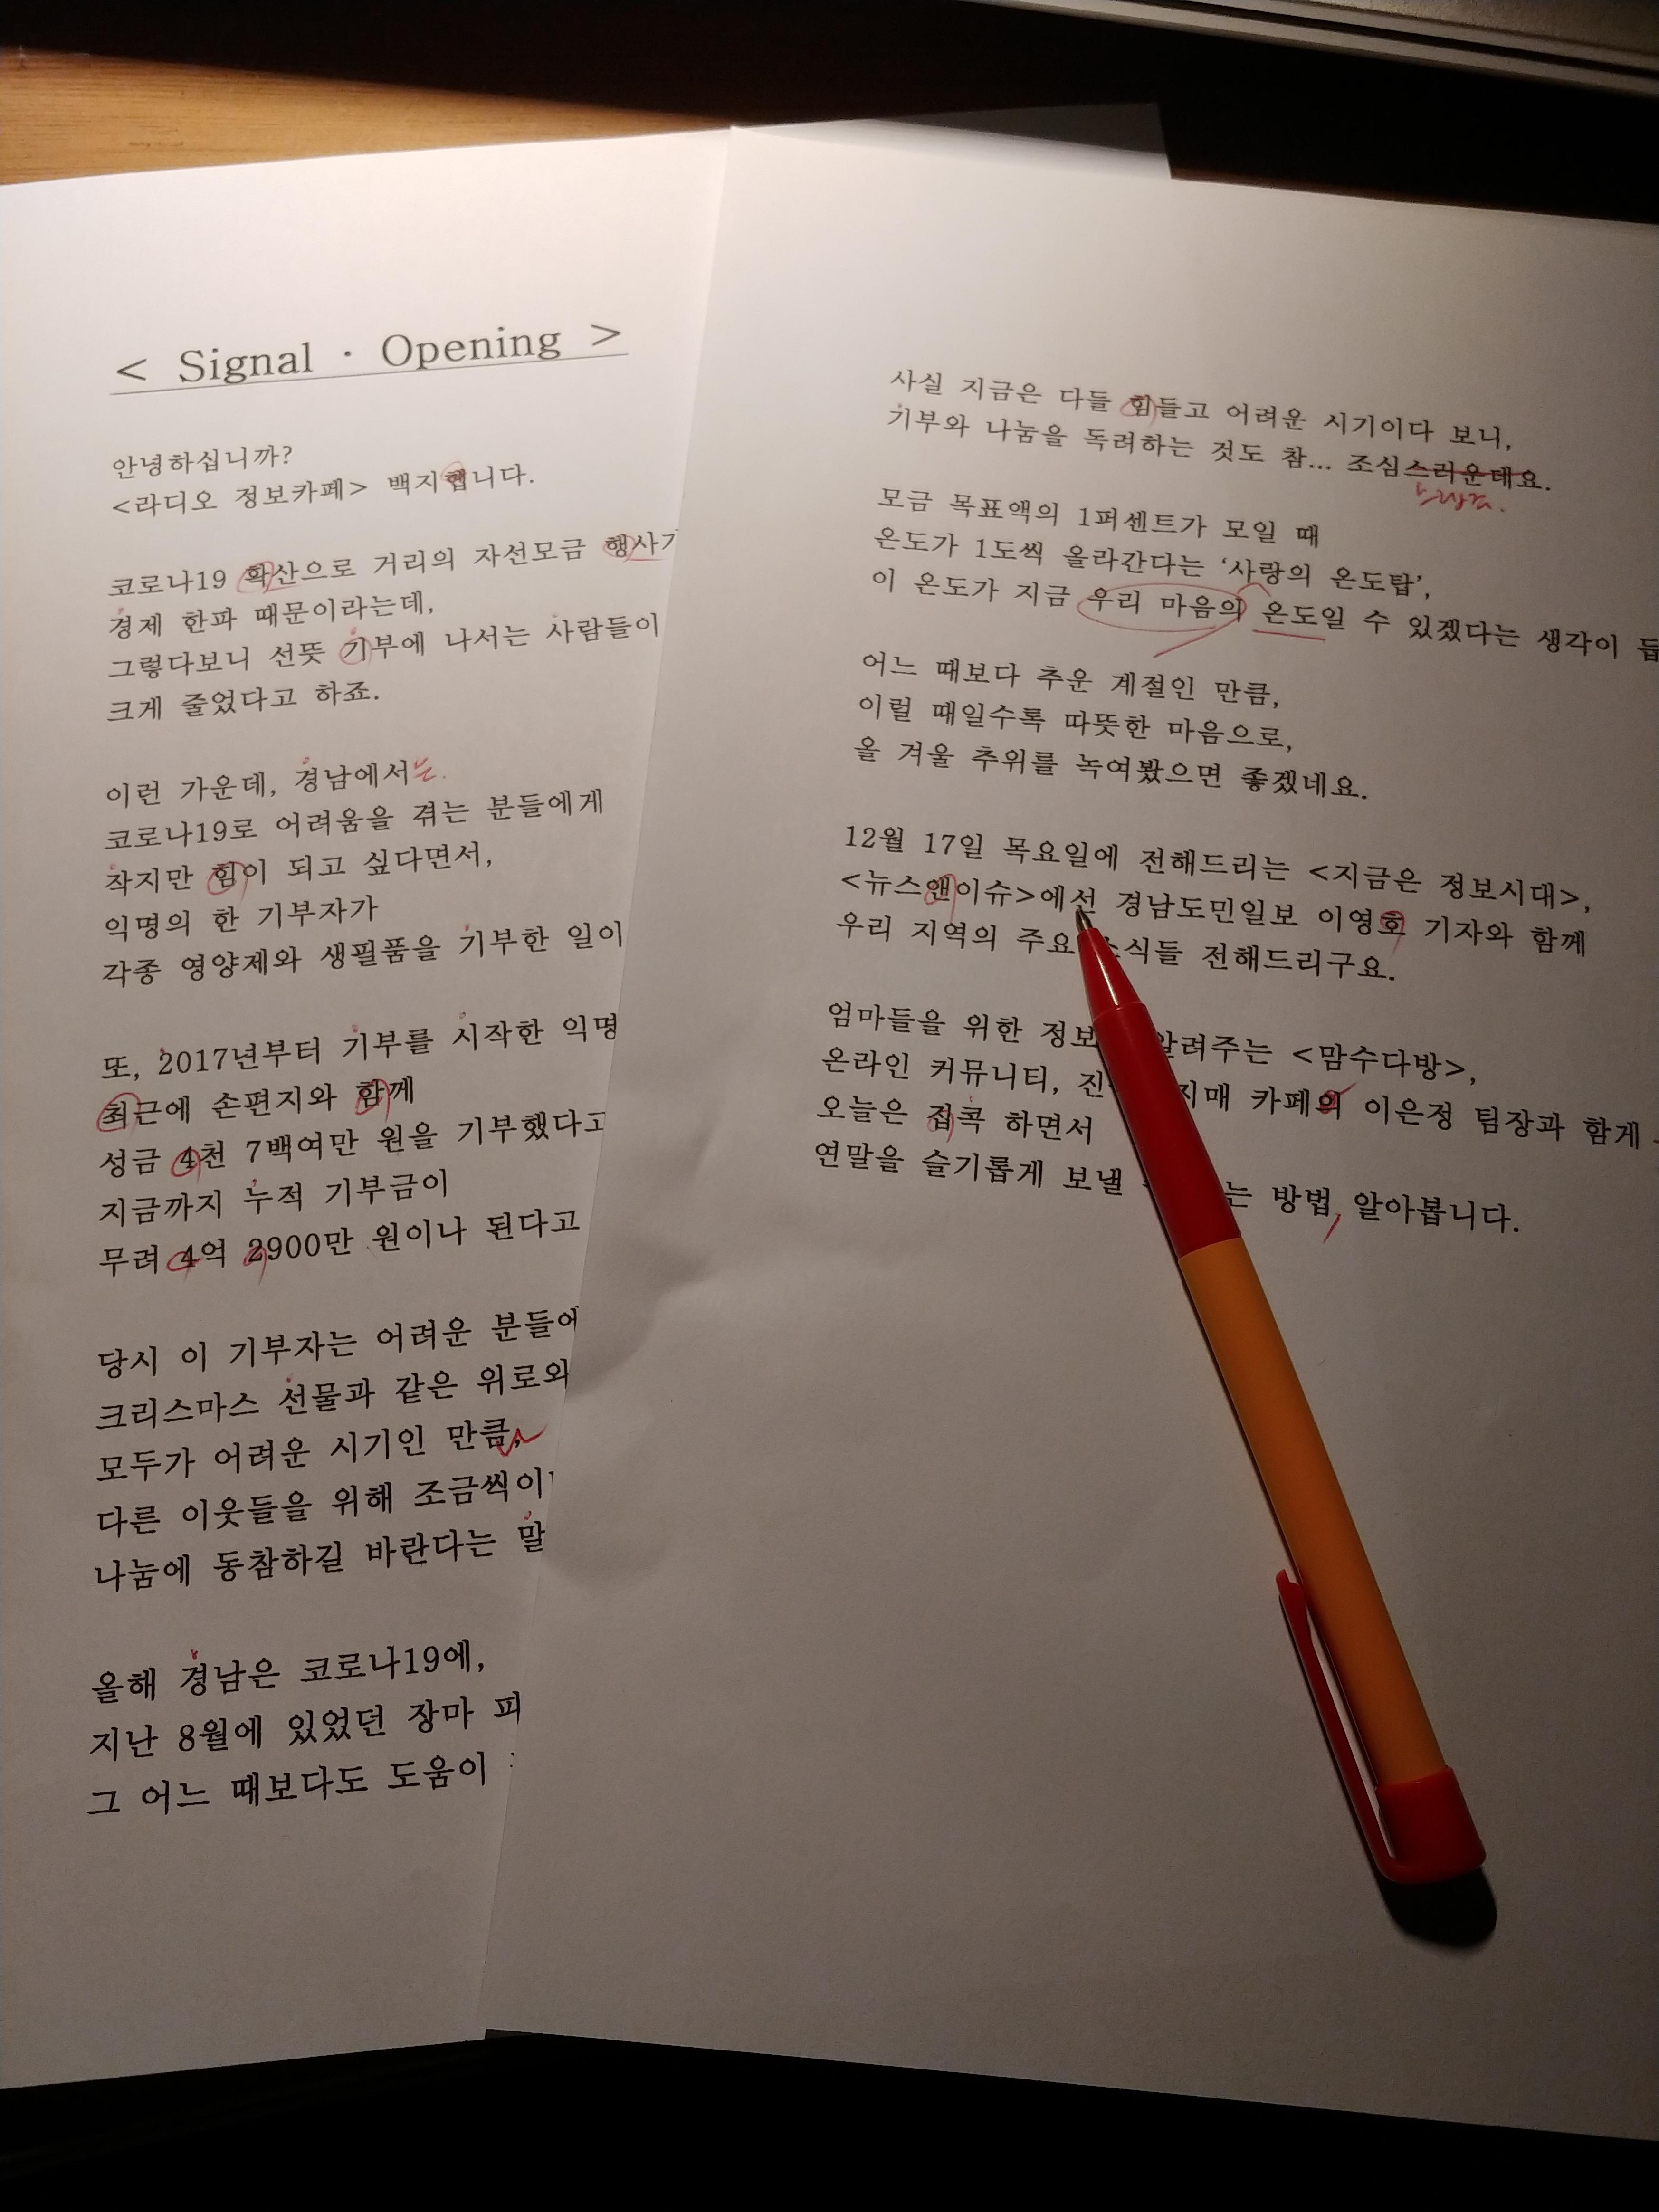 < Signal · Opening >
안녕하십니까?
<라디오 정보카페> 백지혭니다.
코로나19 확산으로 거리의 자선모금 행사가
경제 한파 때문이라는데,
그렇다보니 선뜻 기부에 나서는 사람들이
크게 줄었다고 하죠.
이런 가운데, 경남에서는
코로나19로 어려움을 겪는 분들에게
작지만 힘이 되고 싶다면서,
익명의 한 기부자가
각종 영양제와 생필품을 기부한 일이
또, 2017년부터 기부를 시작한 익명
최근에 손편지와 함께
성금 4천 7백여만 원을 기부했다고
지금까지 누적 기부금이
무려 4억 2900만 원이나 된다고
당시 이 기부자는 어려운 분들에
크리스마스 선물과 같은 위로와
모두가 어려운 시기인 만큼,
다른 이웃들을 위해 조금씩이
나눔에 동참하길 바란다는 말
올해 경남은 코로나19에,
지난 8월에 있었던 장마 피
그 어느 때보다도 도움이
사실 지금은 다들 힘들고 어려운 시기이다 보니,
기부와 나눔을 독려하는 것도 참... 조심스러운데요.
모금 목표액의 1퍼센트가 모일 때
온도가 1도씩 올라간다는 ‘사랑의 온도탑’,
이 온도가 지금 우리 마음의 온도일 수 있겠다는 생각이 듭
어느 때보다 추운 계절인 만큼,
이럴 때일수록 따뜻한 마음으로,
올 겨울 추위를 녹여봤으면 좋겠네요.
12월 17일 목요일에 전해드리는 <지금은 정보시대>,
<뉴스앤이슈>에선 경남도민일보 이영호 기자와 함께
우리 지역의 주요 소식들 전해드리구요.
엄마들을 위한 정보 알려주는 <맘수다방>,
온라인 커뮤니티, 진 지매 카페의 이은정 팀장과 함께
오늘은 집콕 하면서
연말을 슬기롭게 보낼 는 방법, 알아봅니다.